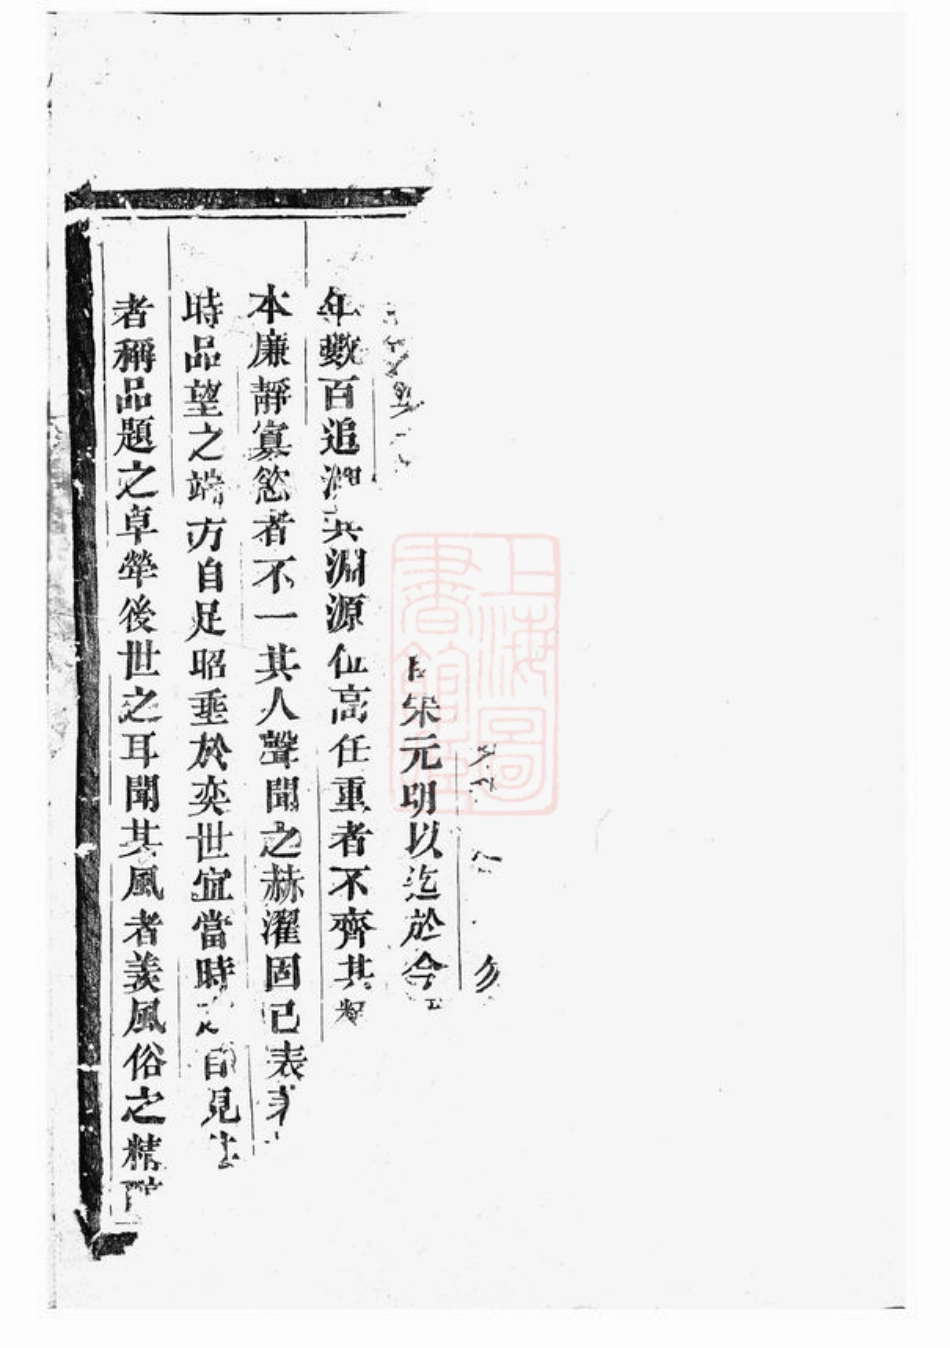 宋元明以迄於今
年數百追溯其淵源位高任重者不齊其
本廉靜寡慾者不一其人聲聞之赫濯固已表
時品望之端方自足昭垂於奕世宜當時之自見
者稱品題之卓犖後世之耳聞其風者羨風俗之精
上海圖書館藏